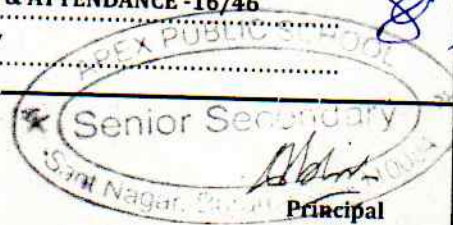 & ATTENDANCE -16/46
APEX PUBLIC SCHOOL
Senior Secondary
Sant Nagar,
Principal